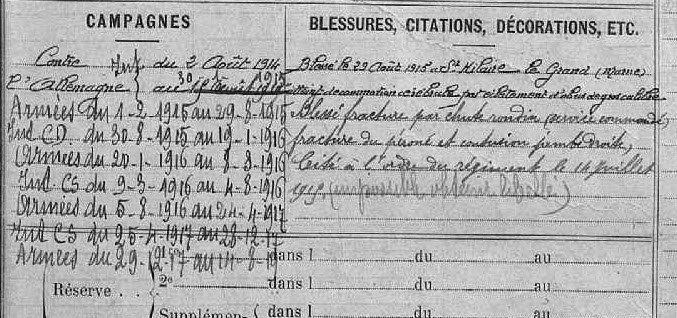 CAMPAGNES
BLESSURES, CITATIONS, DÉCORATIONS, ETC.
Contre Int du 2 Août 1914
l'Allemagne au 30
Armées du 1-2-1915 au 29-8-1915
Int CD. du 30-8-1915 au 19-1-1916
Armées du 20-1-1916 au 8-3-1916
Int CS du 9-3-1916 au 4-8-1916
Armées du 5-8-1916 au 24-4-1917
Int CS du 25-4-1917 au 28-12-17
Armées du 29-12-17 au 14-8-19
Blessé le 29 Août 1915 à St Hilaire le Grand (Marne)
commotion cérébrale par éclatement d'obus de gros calibre
Blessé fracture par chute rondin (service commandé)
fracture du péroné et contusion jambe droite,
Cité à l'ordre du régiment le 14 juillet
(impossible obtenir libellé)
Réserve . .
dans l du au
2e dans l du au
Supplémen- dans l du au